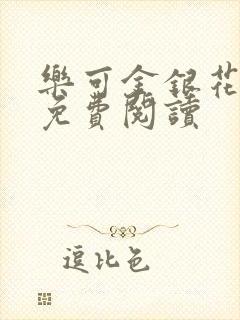 樂可金銀花
免費閱讀
逗比色